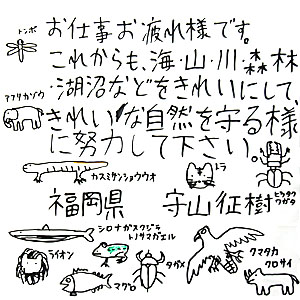 トンボ
お仕事お疲れ様です。
これからも、海・山・川・森林
・湖沼などをきれいにして、
アフリカゾウ
きれいな自然を守る様
に努力して下さい。
カスミサンショウウオ
トラ
ヒラタクワガタ
福岡県 守山征樹
シロナガスクジラ
トノサマガエル
ライオン
マグロ
タガメ
クマタカ
クロサイ